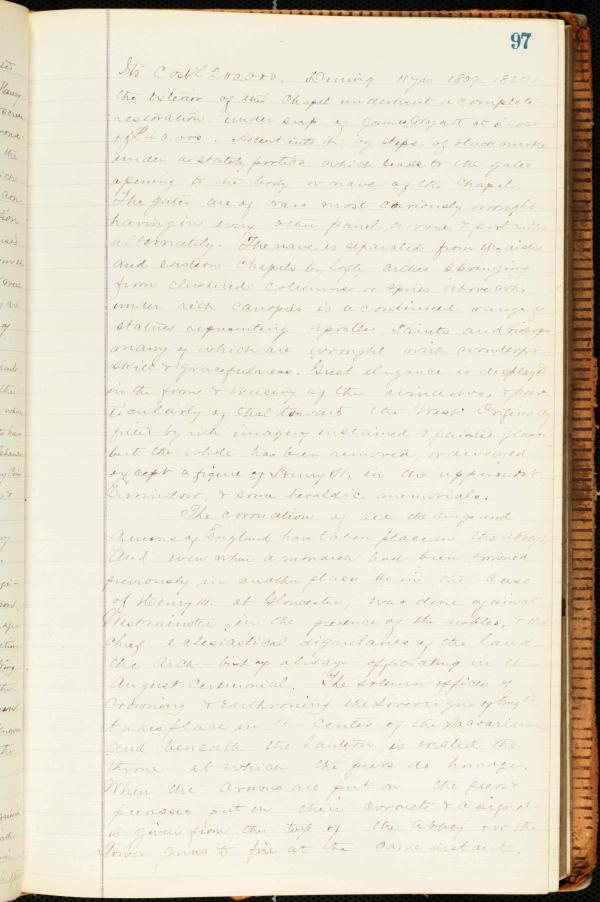 97
Its Cost £200.000. During 11 yrs 1809-1820
the exterior of this Chapel underwent a complete
restoration under sup of James Wyatt at a cost
of £42.000. Ascent into it by steps of black marble
under a stately portico which leads to the gates
opening to the body or nave of the Chapel.
The gates are of brass most curiously wrought
having in every other panel a rose & portcullis
alternately. The nave is separated from the aisles
and eastern Chapels by lofty arches springing
from clustered columns
under rich canopies is a continued range of
statues representing Apostles, Saints and bishops
many of which are wrought with wonderful
skill & gracefulness. Great elegance is displayed
in the form & tracery of the windows, & par
ticularly of that toward the West. Originally
filled by rich imagery in stained & painted glass
but the whole has been removed, or destroyed
except a figure of Henry in the uppermost
E. window, & some heraldic memorials.
The coronation of all the kings and
Queens of England have taken place in the Abbey.
And even when a monarch had been crowned
previously, in another place as in the case
of Henry III. at Gloucester, was done again at
Westminster in the presence of the nobles, & the
chief eclesiastical dignitaries of the land,
the Arch-bishop always officiating in the
August Ceremonial. The solemn offices of
Crowning & Enthroning the Sovereigns of Engld
takes place in the Center of the Sacrarium
and beneath the Lantern is erected the
throne at which the peers do homage.
When the Crowns are put on the peers &
peeresses put on their Coronets & a signal
is given from the top of the Abbey for the
Tower guns to fire at the same instant.